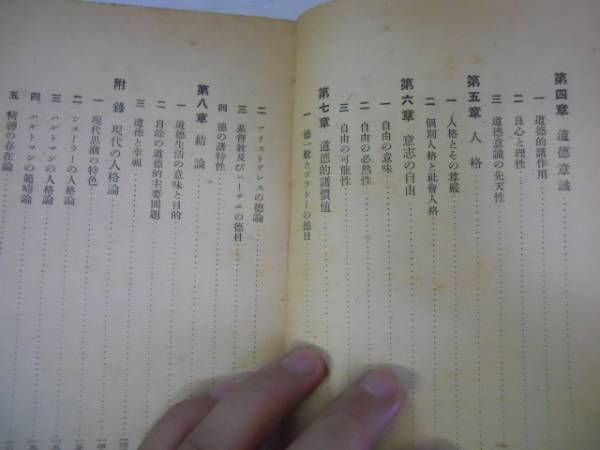 第四章 道德意識
一 道德的諸作用
二 良心と理性
三 道德意識の先天性
第五章 人格
一 人格とその尊嚴
二 個別人格と社會人格
第六章 意志の自由
一 自由の意味
二 自由の必然性
三 自由の可能性
第七章 道德的諸價値
一 德一般とプラトーの德目
二 アリストテレスの德論
三 基督敎及びニーチエの德目
四 德の諸特性
第八章 結論
一 道德生活の意味と目的
二 自餘の道德的主要問題
三 道德と幸福
附錄 現代の人格論
一 現代思潮の特色
二 シエーラーの人格論
三 ハルトマンの人格論
四 ハルトマンの範疇論
五 精神の存在論